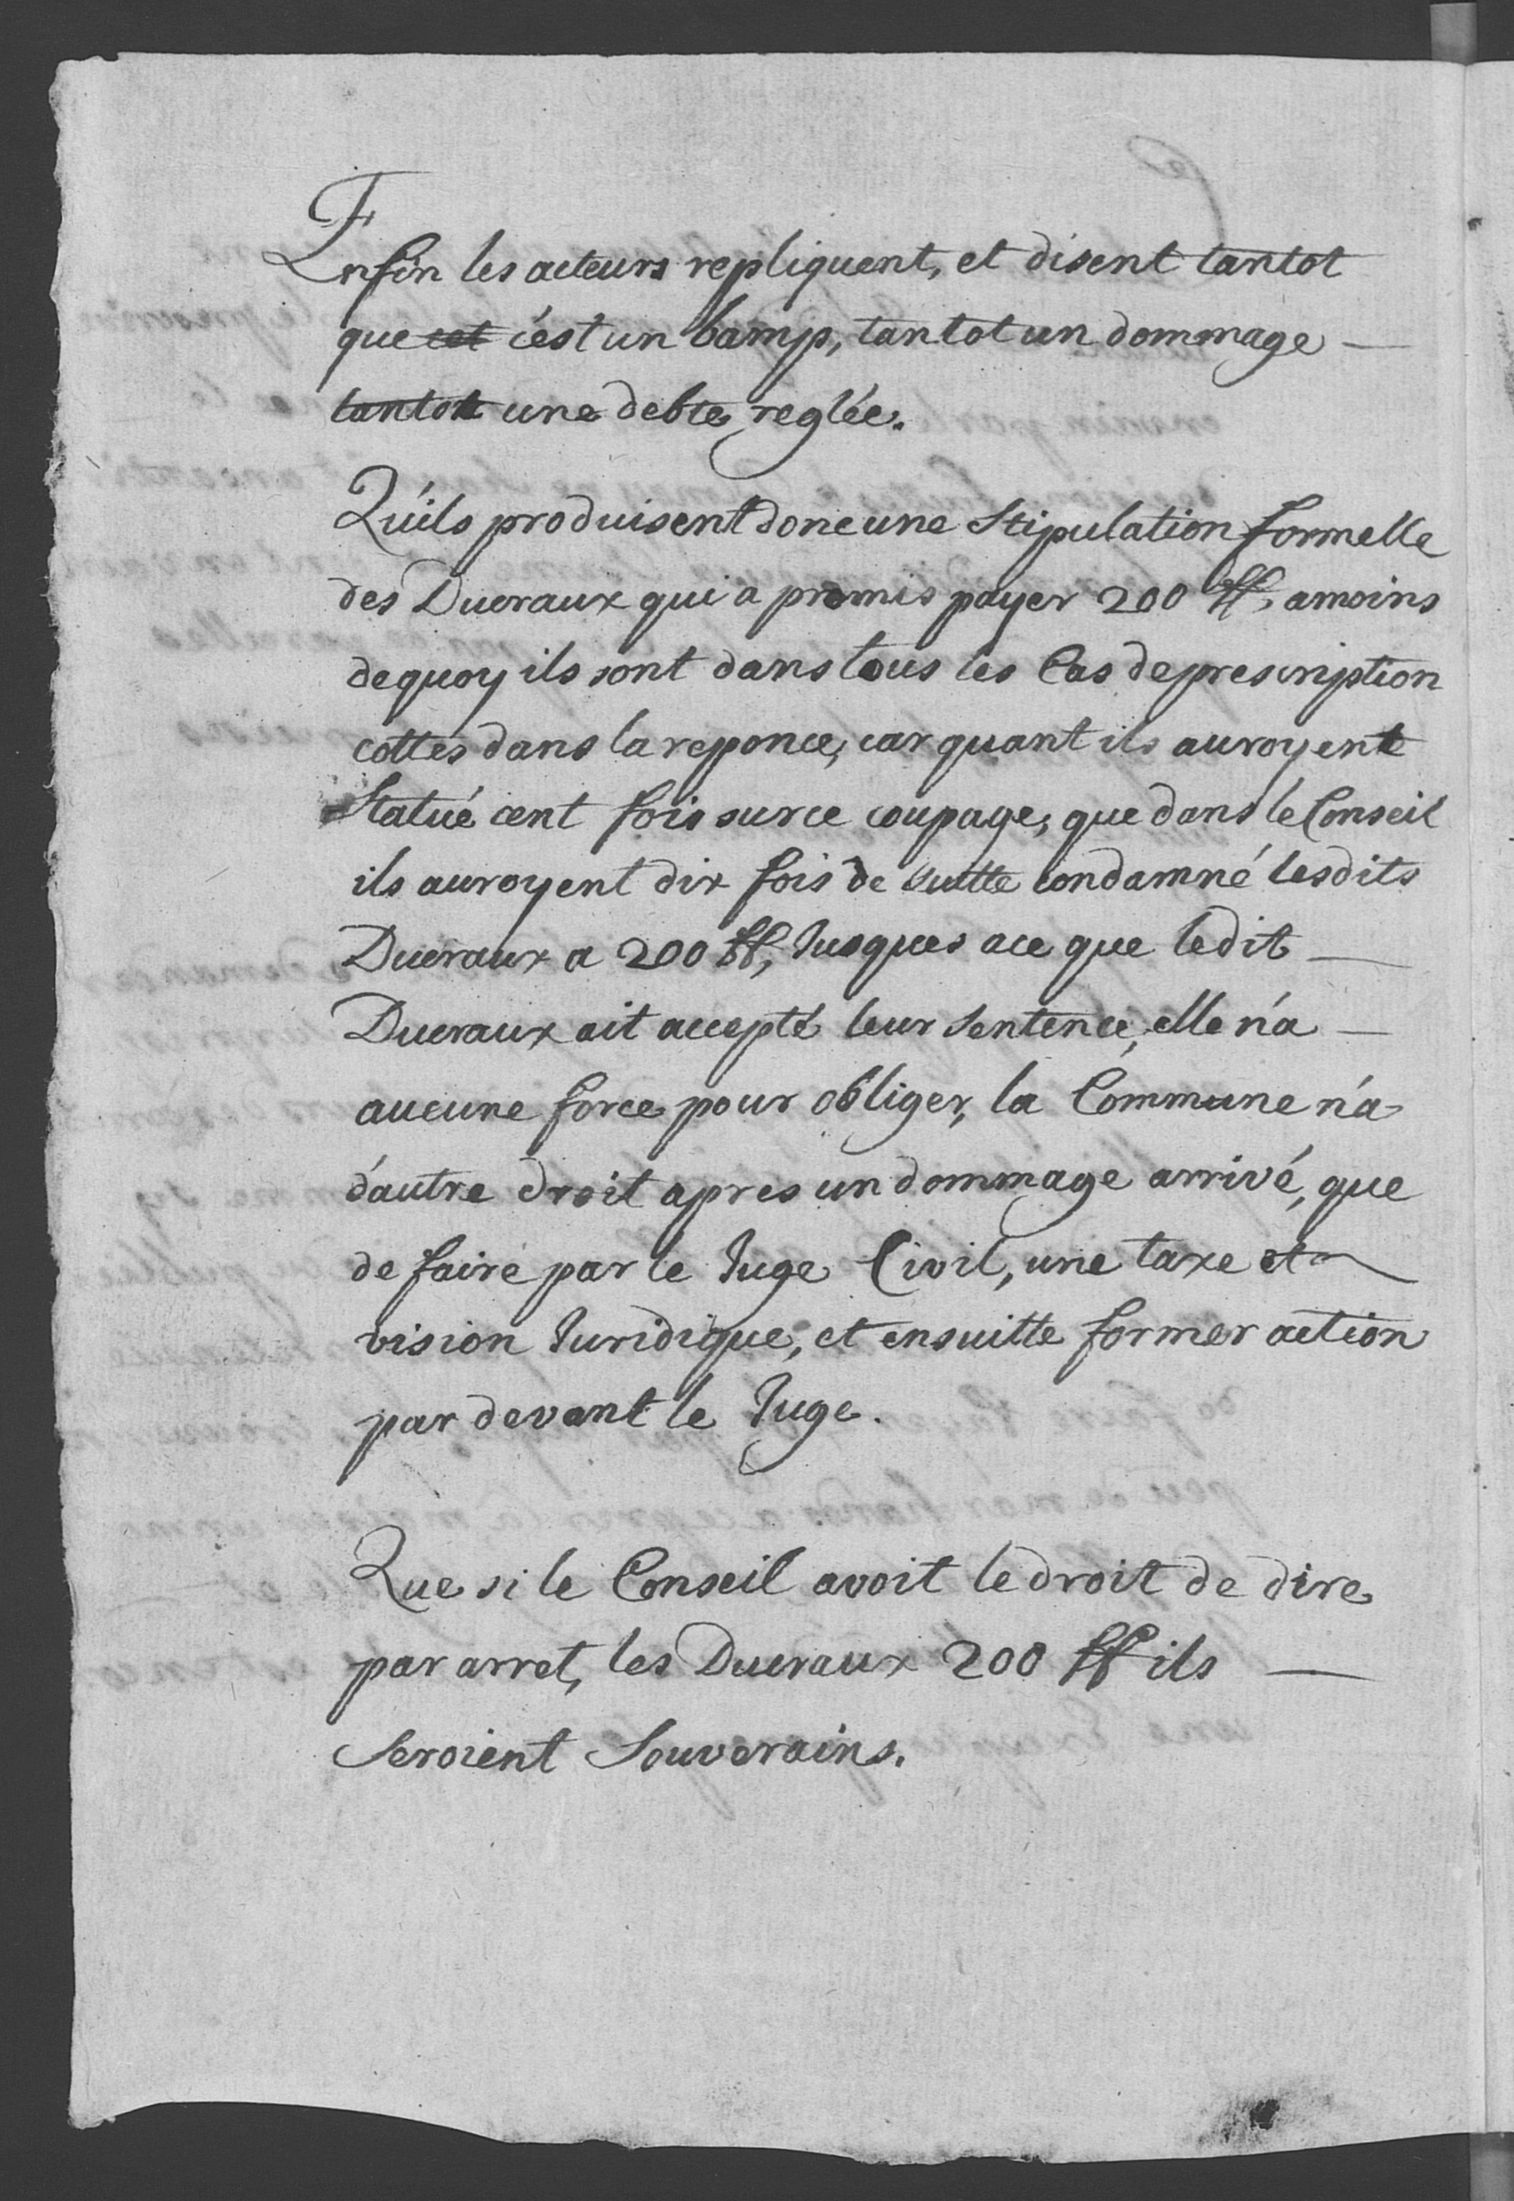 Enfin les acteurs repliquent, et disent tantot
que cet c'est un bamp, tantot un dommage —
tantott une debte reglée.
Qu'ils produisent donc une Stipulation formelle
des Ducraux qui a promis payer 200 ff, amoins
dequoy ils sont dans tous les Cas de prescription
cottés dans la reponce, car quant ils auroyent
Statué cent fois sur ce coupage, que dans le Conseil
ils auroyent dix fois de suitte condamné lesdits
Ducraux a 200 ff, Jusques ace que ledit —
Ducraux ait accepté leur Sentence, elle n'a —
aucune force pour obliger, la Commune n'a
d'autre droit apres un dommage arrivé, que
de faire par le Juge Civil, une taxe et
vision Juridique, et ensuitte former action
par devant le Juge.
Que si le Conseil avoit le droit de dire
par arret, les Ducraux 200 ff ils —
Seroient Souverains.